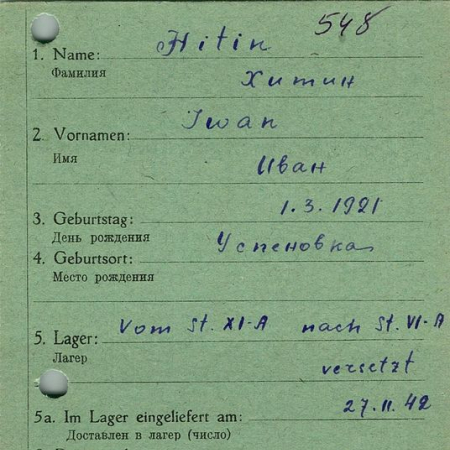 548
1. Name: Hitin
Фамилия Хитин
2. Vornamen: Iwan
Имя Иван
3. Geburtstag: 1.3.1921
День рождения
4. Geburtsort: Успеновка
Место рождения
5. Lager: Vom St. XI-A nach St. VI-A
Лагер versetzt
5a. Im Lager eingeliefert am: 27.11.42
Доставлен в лагер (число)